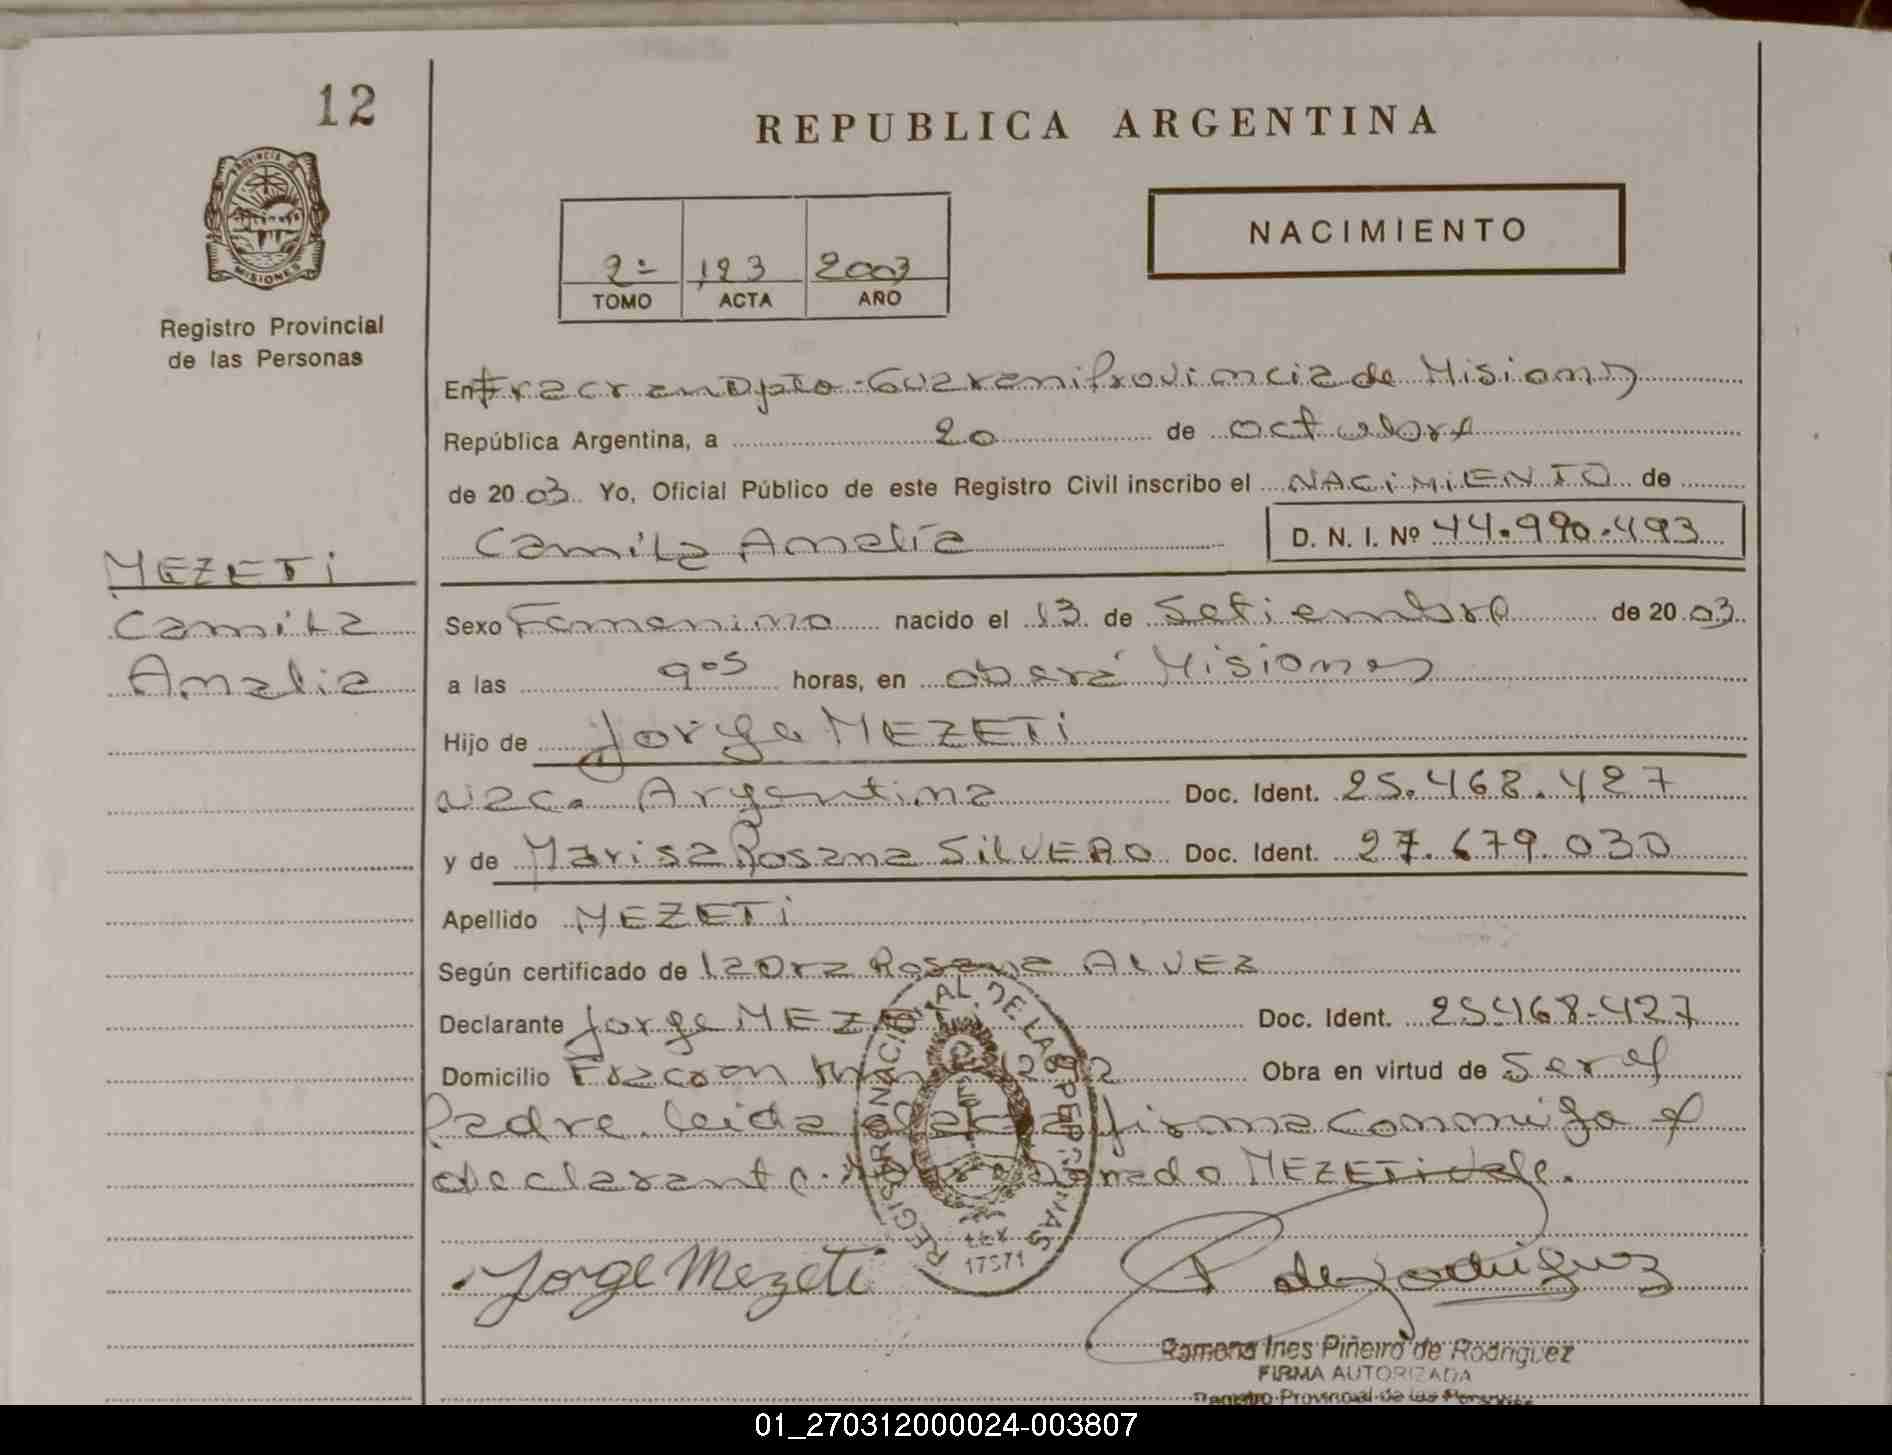 12
REPUBLICA ARGENTINA
PROVINCIA DE
MISIONES
Registro Provincial
de las Personas
2º 123 2003
TOMO ACTA AÑO
NACIMIENTO
En Fracran Dpto. Guarani Provincia de Misiones
República Argentina, a 20 de octubre
de 20 03 Yo, Oficial Público de este Registro Civil inscribo el NACIMIENTO de
Camila Amalia D. N. I. Nº 44.990.493
MEZETI
Camila
Amalia
Sexo Femenino nacido el 13 de Setiembre de 20 03
a las 9 05 horas, en oberá Misiones
Hijo de Jorge MEZETI
Nac. Argentina Doc. Ident. 25.468.427
y de Marisa Rosana SILVERO Doc. Ident. 27.679.030
Apellido MEZETI
Según certificado de Rosana ALVEZ
Declarante Jorge Doc. Ident. 25.468.427
Domicilio Fracran Obra en virtud de ser el
Padre. leida firma conmigo el
declarante. MEZETI vale.
REGISTRO NACIONAL DE LAS PERSONAS
17571
Jorge Mezeti
R de Rodriguez
Ramona Ines Piñeiro de Rodriguez
FIRMA AUTORIZADA
Registro Provincial de las Personas
01_270312000024-003807